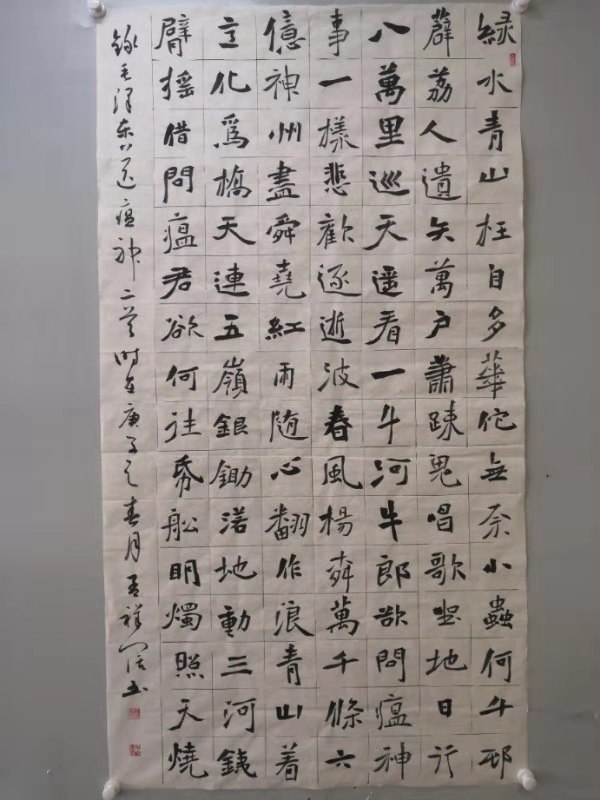 緑水青山枉自多華佗無奈小蟲何千邨
薜荔人遺矢萬户蕭疎鬼唱歌坐地日行
八萬里巡天遥看一千河牛郎欲問瘟神
事一樣悲歡逐逝波春風楊柳萬千條六
億神州盡舜堯紅雨随心翻作浪青山着
意化爲橋天連五嶺銀鋤落地動三河鐵
臂摇借問瘟君欲何往紙船明燭照天燒
錄毛澤东送瘟神二首时在庚子之春月祥书